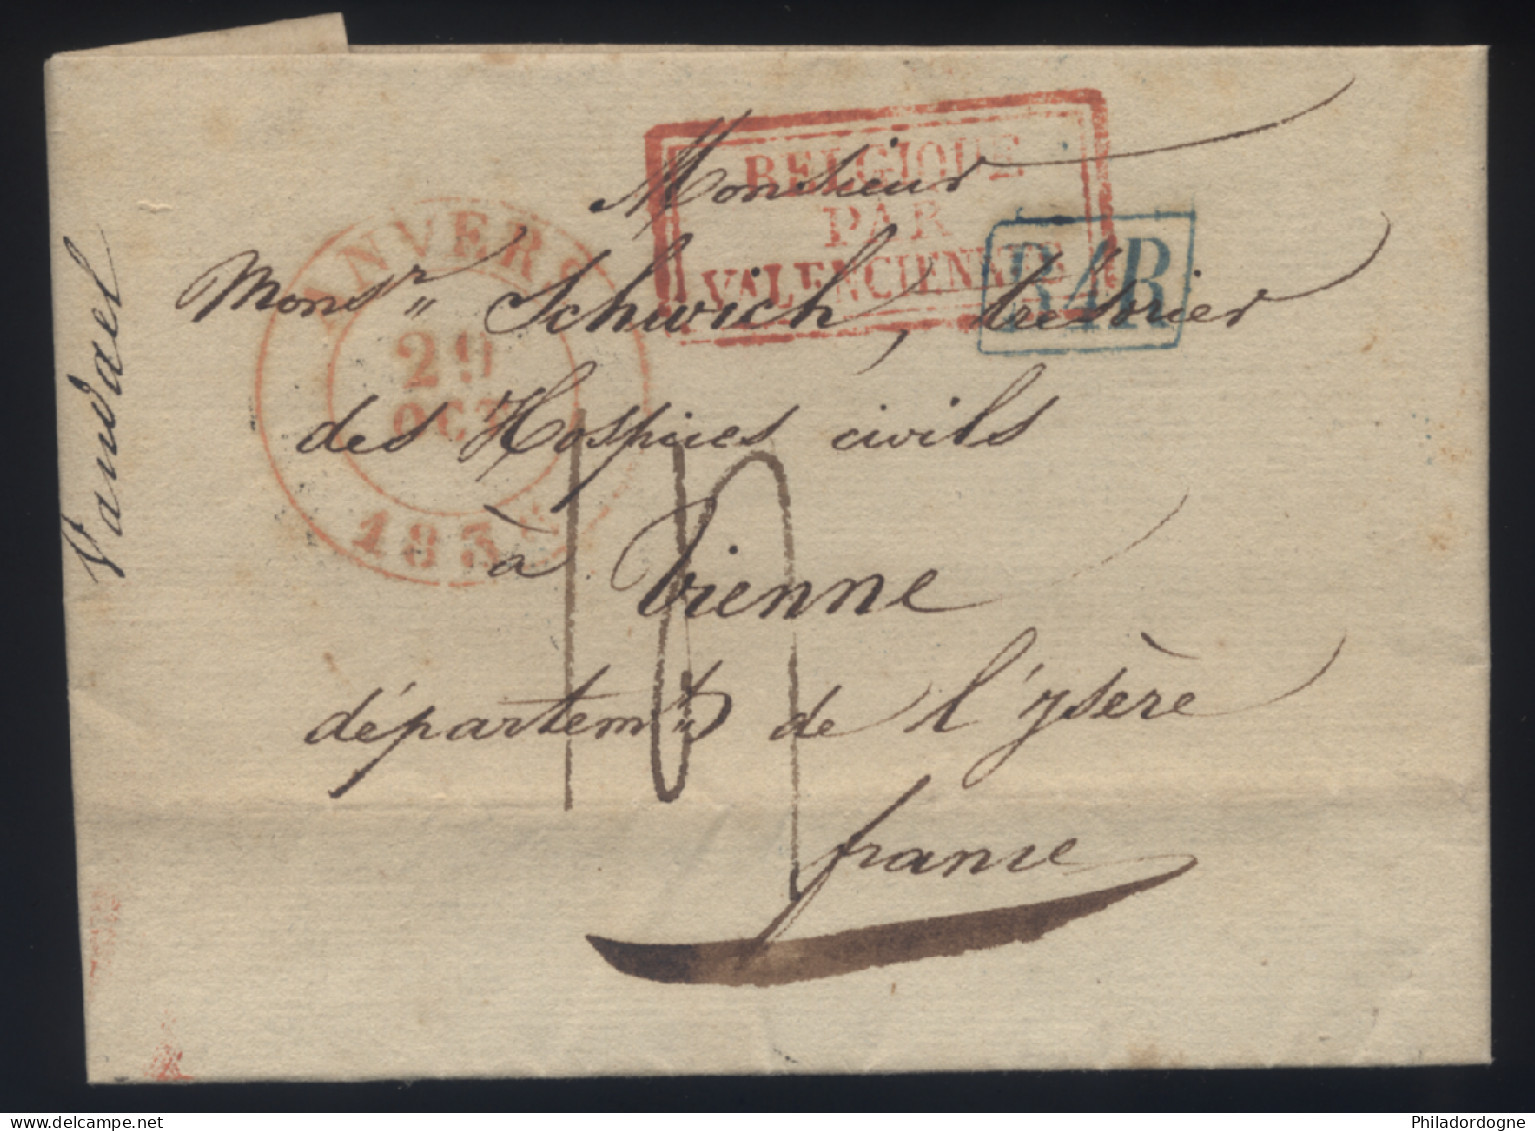 BELGIQUE
PAR
VALENCIENNES
B4R
ANVERS
29
OCT
183
Monsieur
Monsr Schwich, trésorier
des Hospices civils
à Vienne
départemt de l'ysère
france
Vandael
delcampe.net
Philadordogne